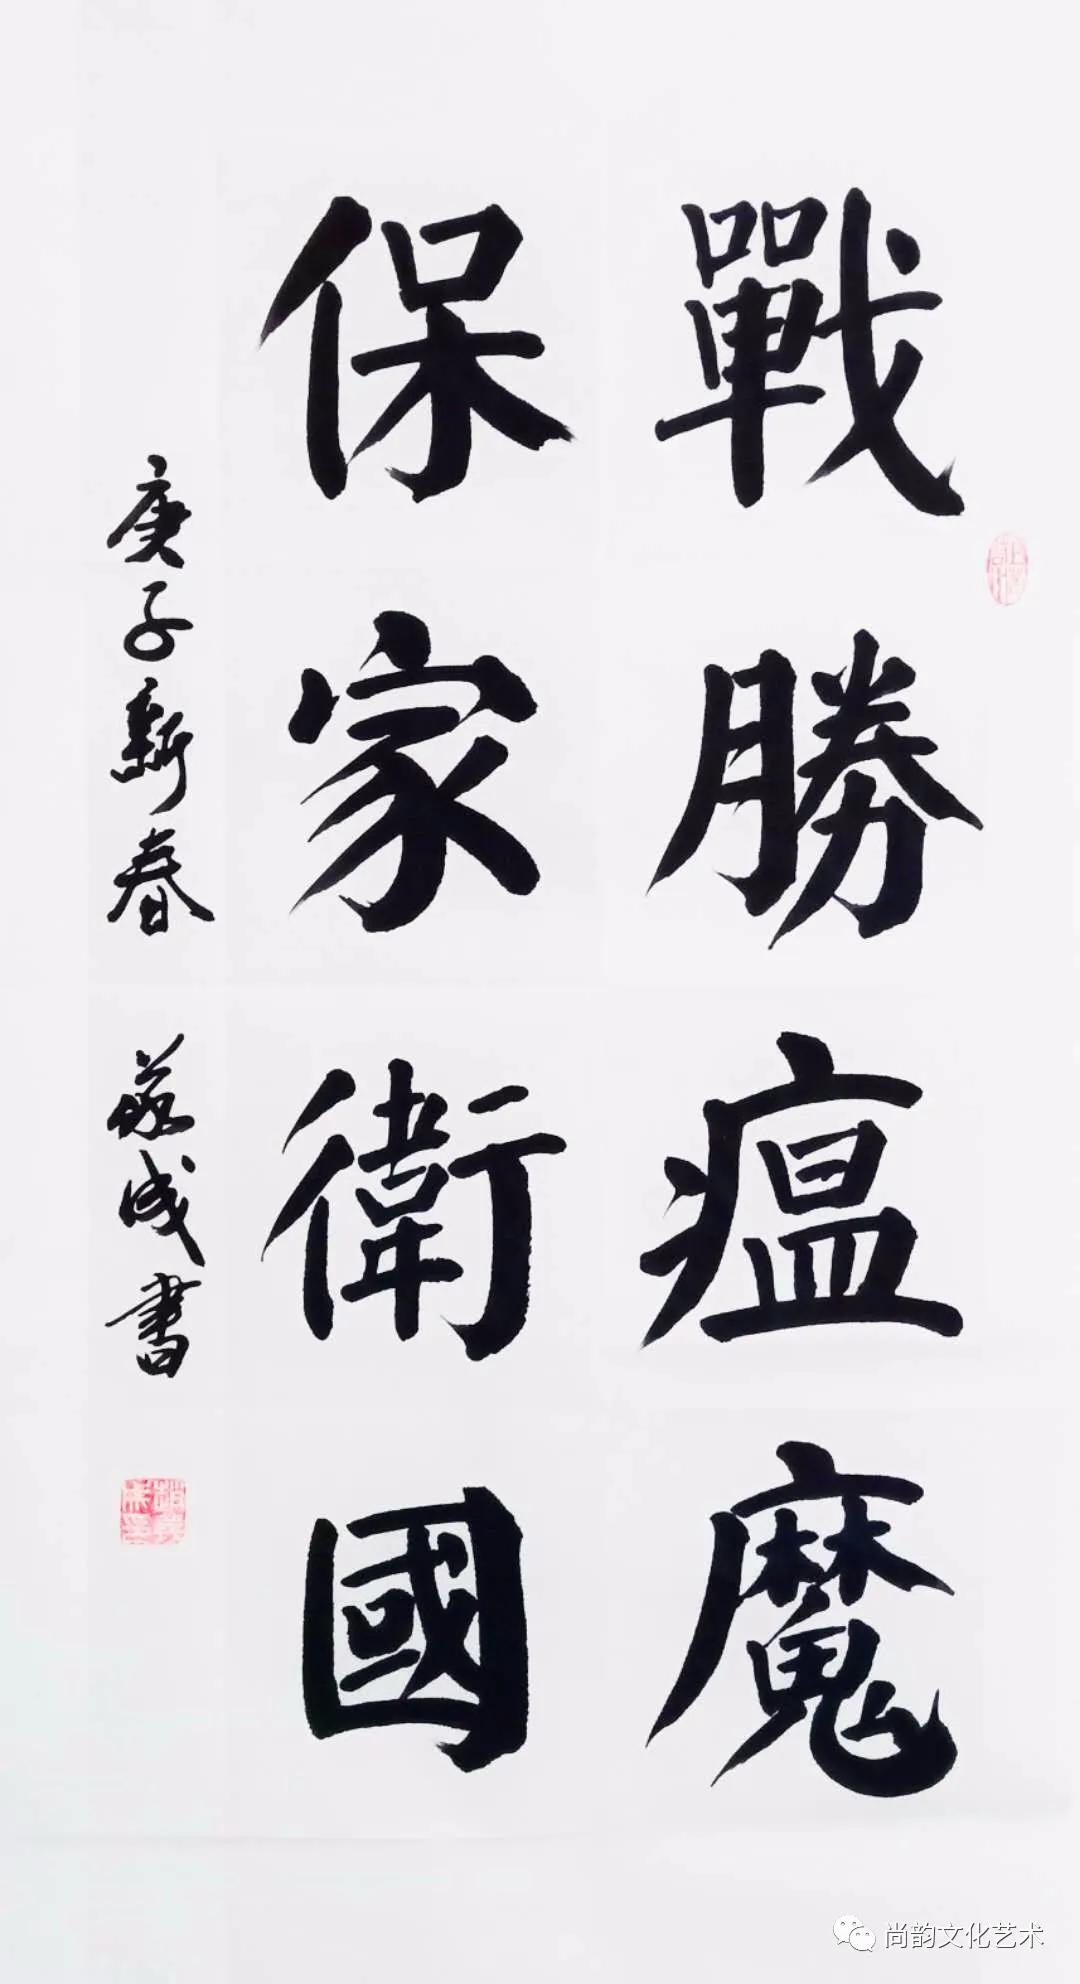 戰勝瘟魔
保家衛國
庚子新春 義成書
尚韵文化艺术